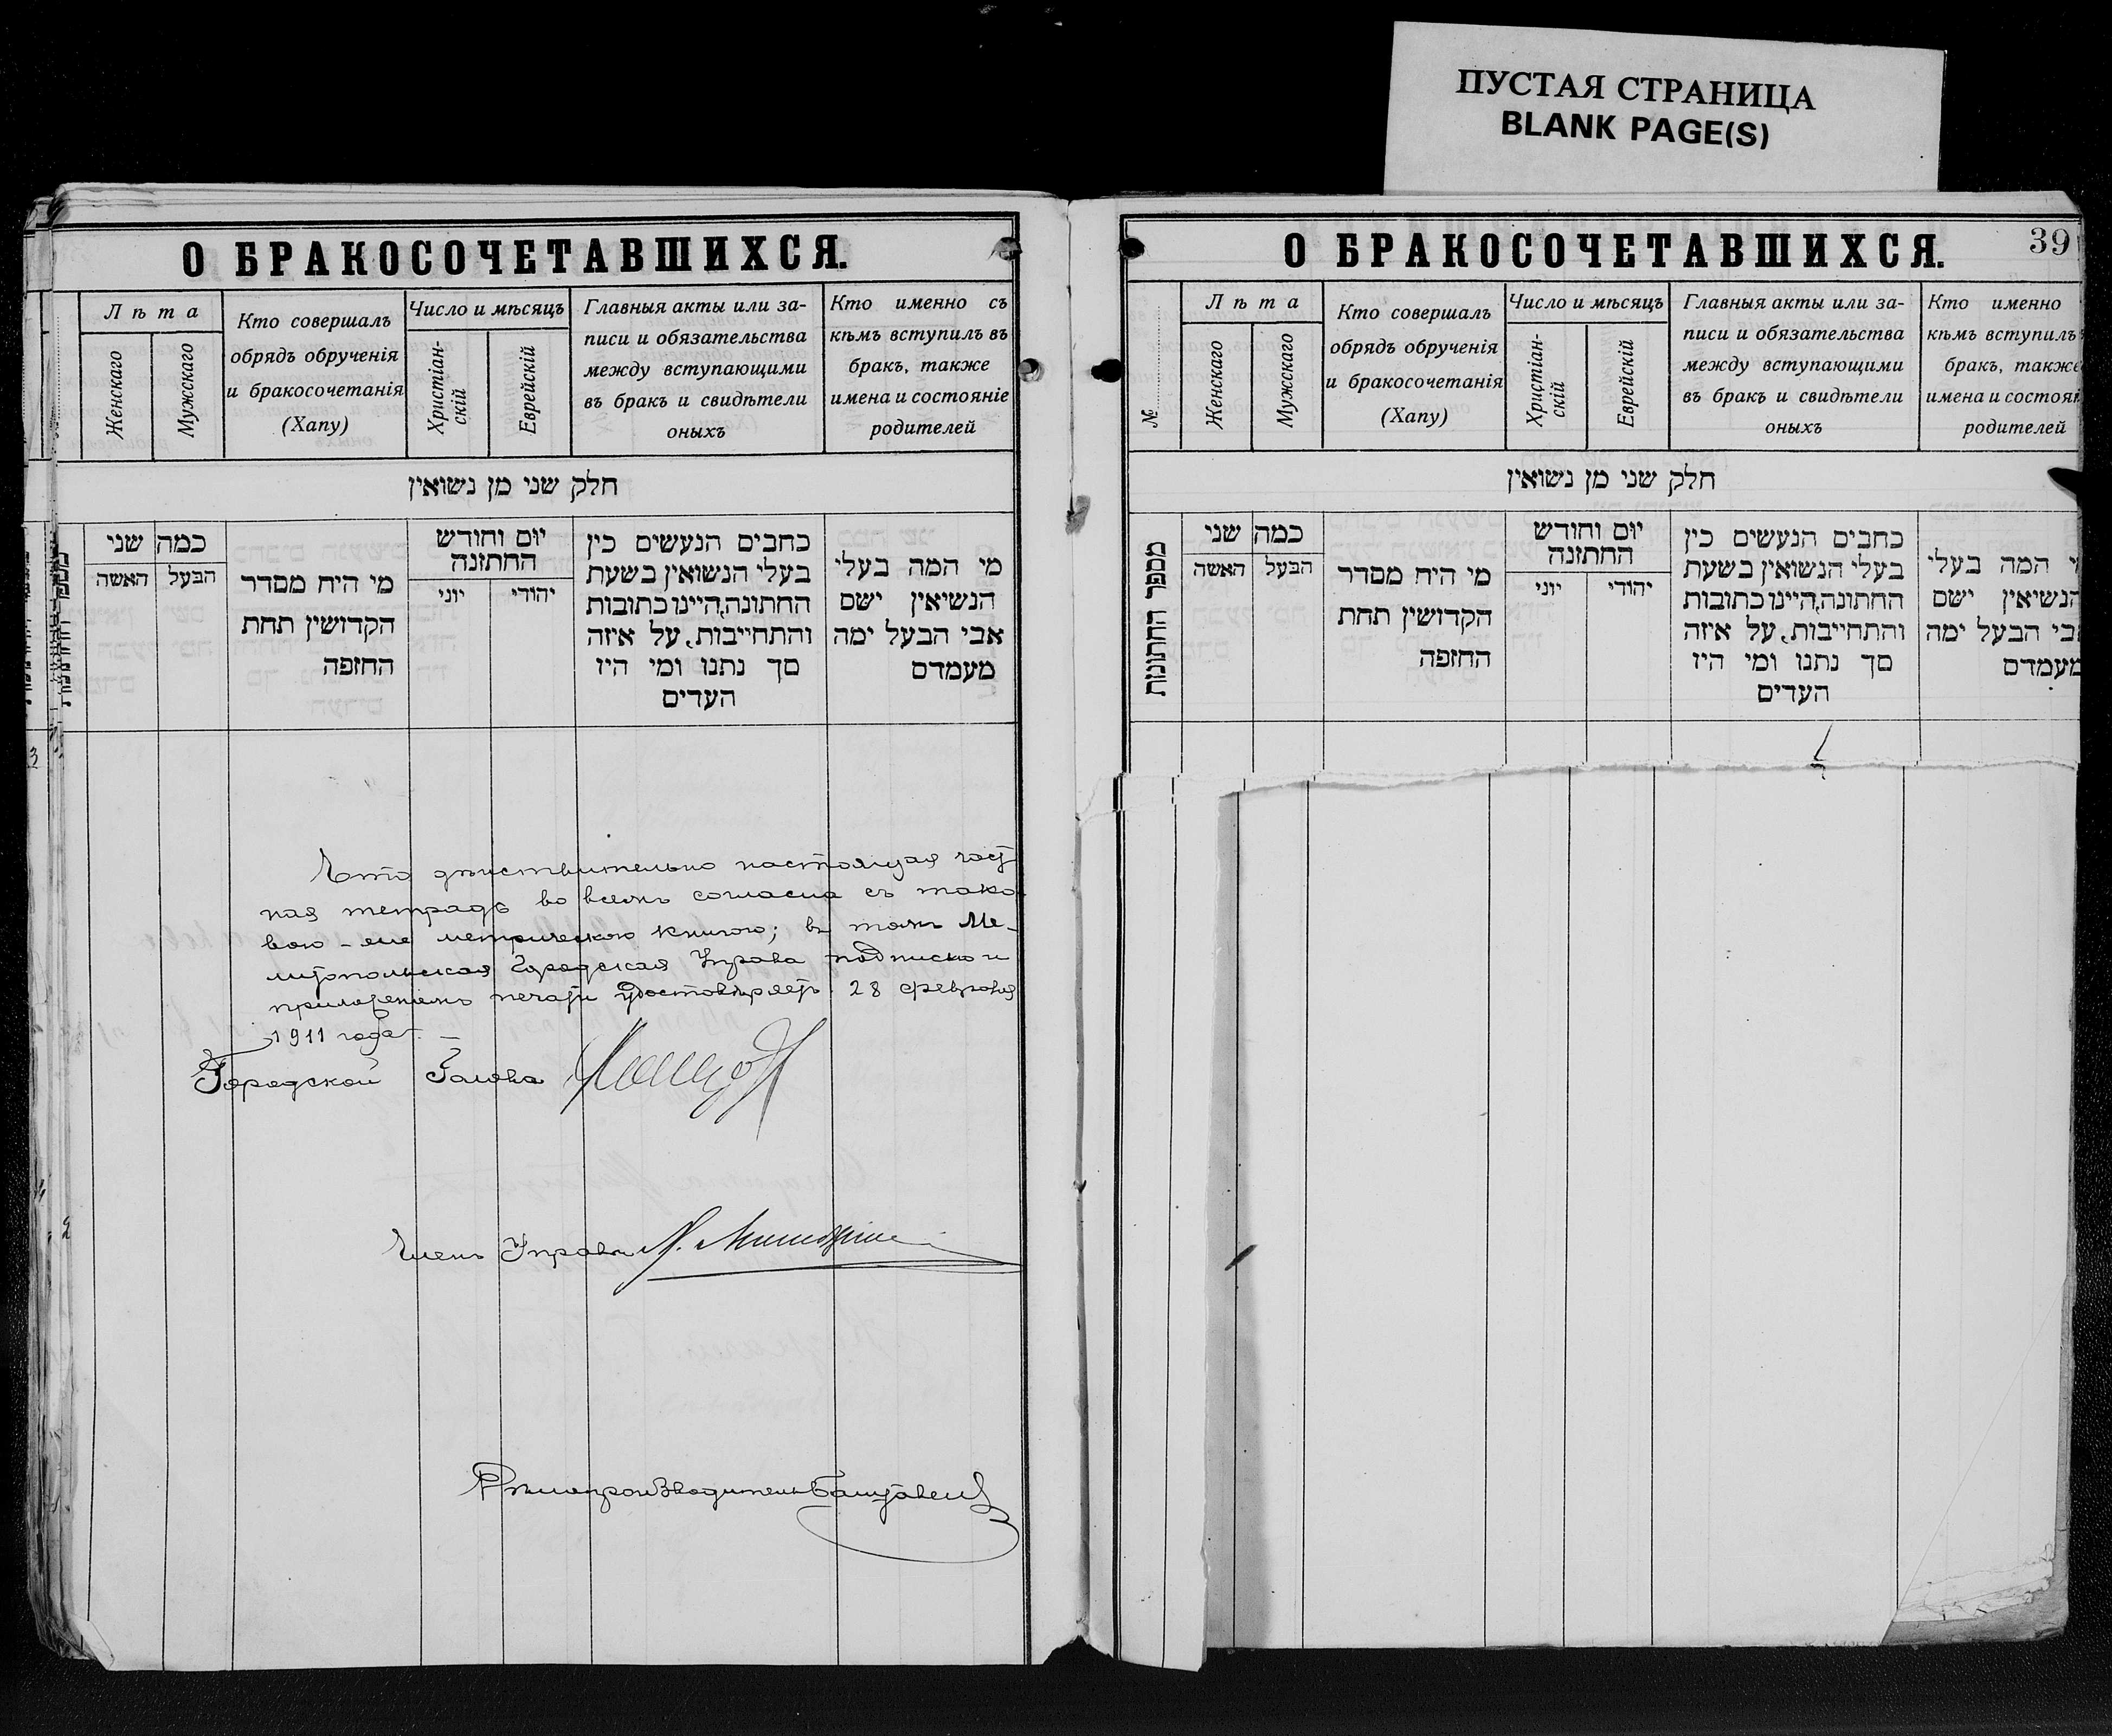 ПУСТАЯ СТРАНИЦА
BLANK PAGE(S)
О БРАКОСОЧЕТАВШИХСЯ.
Лѣта
Женскаго
Мужскаго
Кто совершалъ
обрядъ обрученія
и бракосочетанія
(Хапу)
Число и мѣсяцъ
Христіан-
скій
Еврейскій
Главныя акты или за-
писи и обязательства
между вступающими
въ бракъ и свидѣтели
оныхъ
Кто именно съ
кѣмъ вступилъ въ
бракъ, также
имена и состояніе
родителей
חלק שני מן נשואין
כמה שני
הבעל
האשה
מי היח מסדר
הקדושין תחת
החזפה
יום וחודש
החתזנה
יהודי
יוני
כחבים הנעשים כין
בעלי הנשואין בשעת
החתונה,היינו כתובות
והתחייבות, על איזה
סך נתנו ומי היז
העדים
מי המה בעלי
הנשיאין ישם
אבי הבעל ימה
מעמדם
Что дѣиствительно настоящая част
ная тетрадь во всемъ согласна съ тако
вою-же метрическою книгою; въ томъ Ме-
литопольская Городская Управа подписью и
приложеніемъ печати удостовѣряетъ 28 февраля
1911 года. –
Городской Голова
Членъ Управы
Дѣлопроизводитель
39
О БРАКОСОЧЕТАВШИХСЯ.
№
Лѣта
Женскаго
Мужскаго
Кто совершалъ
обрядъ обрученія
и бракосочетанія
(Хапу)
Число и мѣсяцъ
Христіан-
скій
Еврейскій
Главныя акты или за-
писи и обязательства
между вступающими
въ бракъ и свидѣтели
оныхъ
Кто именно
кѣмъ вступилъ
бракъ, также
имена и состоян
родителей
חלק שני מן נשואין
מספר החתונות
כמה שני
הבעל
האשה
מי היח מסדר
הקדושין תחת
החזפה
יום וחודש
החתזנה
יהודי
יוני
כחבים הנעשים כין
בעלי הנשואין בשעת
החתונה,היינו כתובות
והתחייבות, על איזה
סך נתנו ומי היז
העדים
י המה בעלי
הנשיאין ישם
אבי הבעל ימה
מעמדם